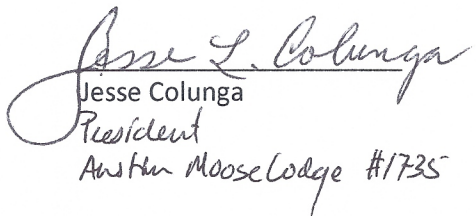 Jesse L. Colunga
Jesse Colunga
President
Austin Moose Lodge #1735